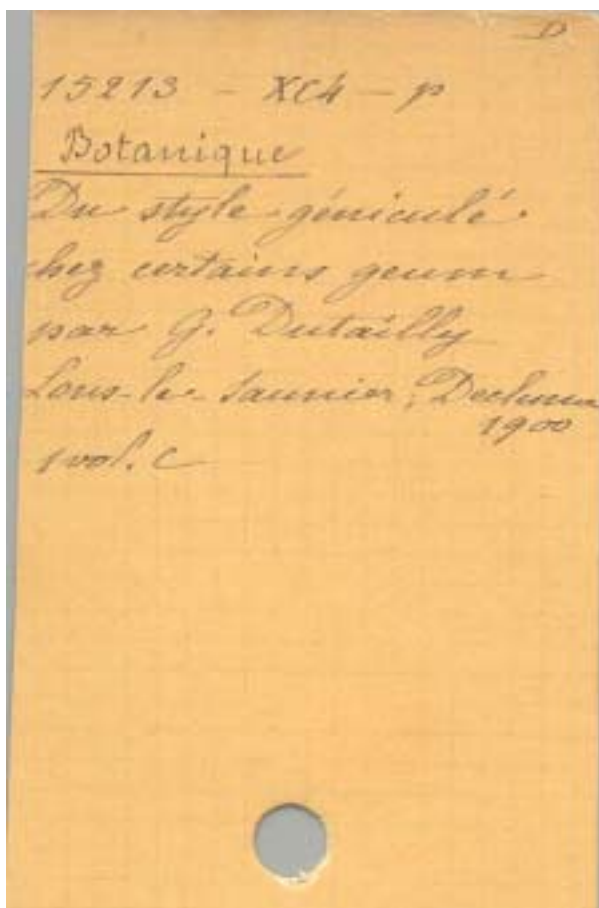 D
15213 - XC4 - p
Botanique
Du style géniculé
chez certains geum
par G. Dutailly
Lons-le-Saunier, Declume
1900
1 vol. C